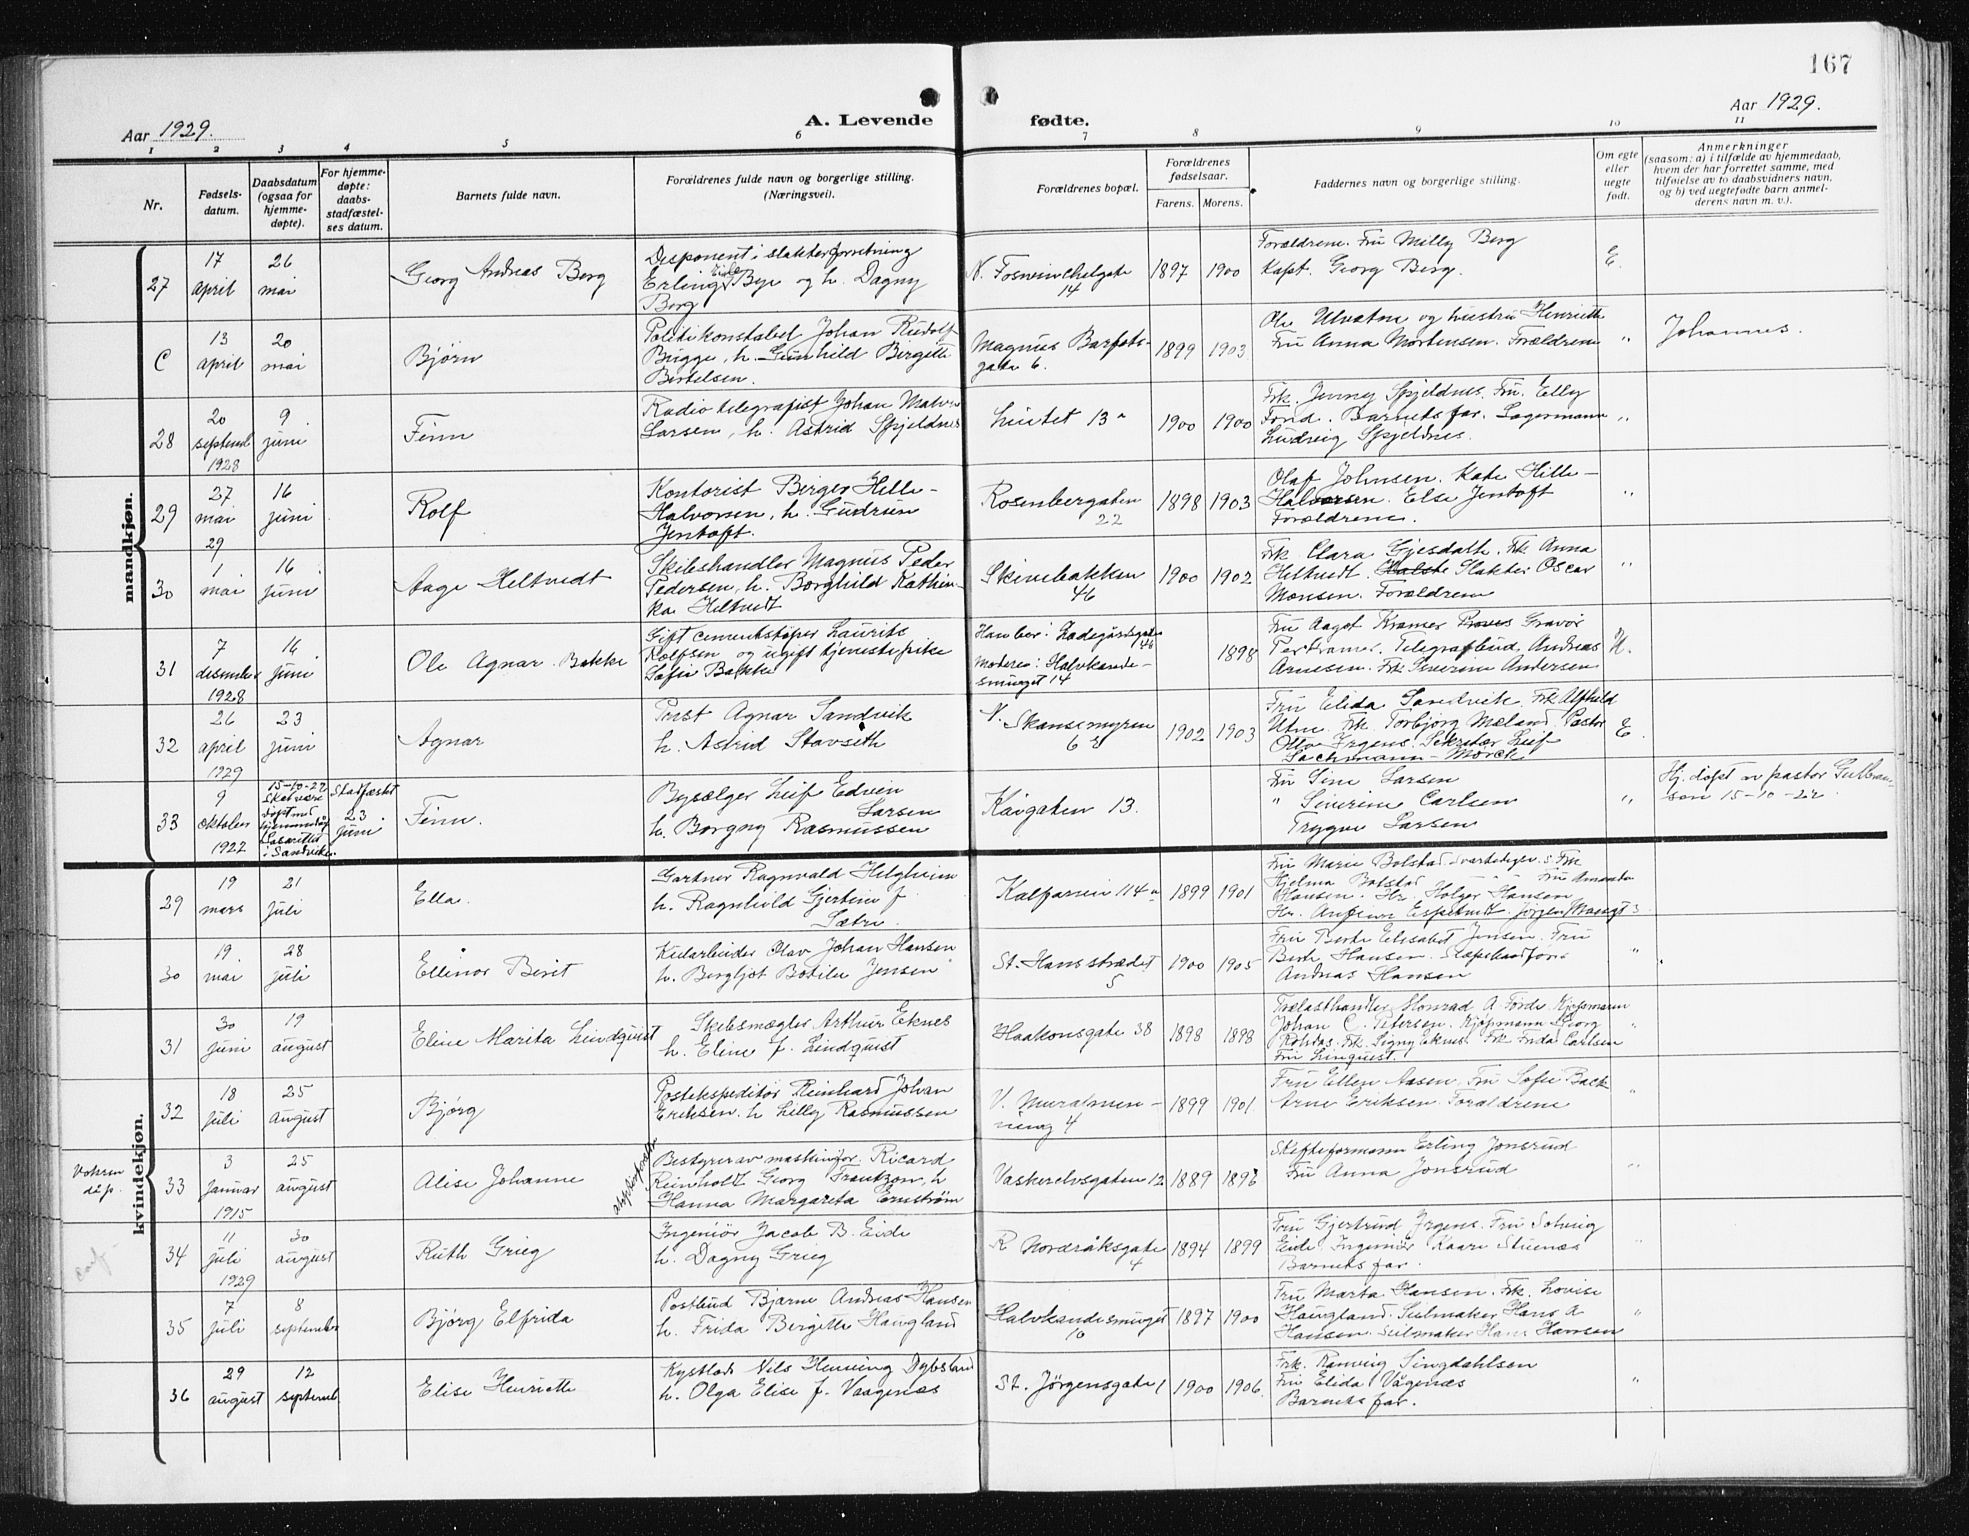 167
Aar 1929.
A. Levende
fødte.
Aar 1929.
1 2 3 4 5 6 7 8 9 10 11
Nr.
Fødsels-
datum.
Daabsdatum
(ogsaa for
hjemme-
døpte).
For hjemme-
døpte:
daabs-
stadfæstel-
ses datum.
Barnets fulde navn.
Forældrenes fulde navn og borgerlige stilling.
(Næringsvei).
Forældrenes bopæl.
Forældrenes
fødselsaar.
Farens. Morens.
Faddernes navn og borgerlige stilling.
Om egte
eller
uegte
født.
Anmerkninger
(saasom: a) i tilfælde av hjemmedaab,
hvem der har forrettet samme, med
tilføielse av to daabsvidners navn,
og b) ved uegtefødte barn anmel-
derens navn m. v.).
mandkjøn.
27
17
april
26
mai
Georg Andreas Berg
Disponent i slakterforretning
Erling Eide Bye og h. Dagny
Berg
14
1897 1900
Forældrene. Fru Milly Berg
Kapt. Georg Berg.
E.
C
13
april
20
mai
Bjørn
Politikonstabel Johan Rudolf
Brügge, h. Gunhild Bergitte
Bertelsen.
Magnus Barfots-
gate 6.
1899 1903
Ole Ulvatne og hustru Henriette
Fru Anna Mortensen. Forældrene
"
Johannes.
28
20
septemb
1928
9
juni
Finn
Radiotelegrafist Johan Malvin
Larsen, h. Astrid Spjeldnes
13a
1900 1900
Frk. Jenny Spjeldnes. Fru. Elly
Tond. Barnets far. Lagermann
Ludvig Spjeldnes.
"
29
27
mai
29
16
juni
Rolf
Kontorist Birger Hille-
Halvorsen, h. Gudrun
Jentoft.
Rosenbergaten
22
1898 1903
Olaf Johnsen. Kate Hille-
Halvorsen. Else Jentoft
Forældrene.
"
30
1
mai
16
juni
Aage Heltvedt
Skibshandler Magnus Peder
Pedersen, h. Borghild Kathin-
ka Heltvedt
Skivebakken
46
1900 1902
Frk. Clara Gjesdahl. Frk Anna
Heltvedt. Slakter Oscar
Monsen. Forældrene
"
31
7
desember
1928
16
juni
Ole Agnar Bakke
Gift cementstøper Laurits
Rolfsen og ugift tjenestepike
Sofie Bakke
Han bor: Ladegårdsgate
46
Moderen: Halvkande-
smuget 14
1898
Fru Aagot Kramer Gravør
Per Kramer. Telegrafbud Andreas
Arnesen. Frk Severine Andersen
U.
32
26
april
1929
23
juni
Agnar
Prest Agnar Sandvik
h. Astrid Stavseth
V. Skansemyren
1902 1903
Fru Elida Sandvik. Frk Alfhild
Utne. Frk. Torbjørg Mæland. Pastor
Otto Irgens. Sekretær Leif
Lachmann-Mørck
E.
33
9
oktober
1922
15-10-22
døpt med
hjemmedåp
Lasarettet
i Sandviken
Stadfæstet
23.
juni
Finn.
Bysælger Leif Edvin
Larsen
h. Borgny Rasmussen
Kaigaten 13.
Fru Sine Larsen
" Severine Carlsen
Trygve Larsen
"
Hj. døpt av pastor Gulbran-
sen 15-10-22
kvindekjøn.
29
19
mars
21
juli
Ella.
Gartner Ragnvald Helgheim
h. Ragnhild Gjertine f.
Sætre
Kalfarvein 114a
1899 1901
Fru Marie Bolstad.
Hjelma Bolstad Fru Amanda
Hansen. Hr. Holger Hansen
30
19
mai
28
juli
Ellinor Berit
Kularbeider Olav Johan Hansen
h. Bergljot Botilla Jensen
St. Hansstrædet
5
1900 1905
Fru Berte Elisabet Jensen. Fru
Berte Hansen.
Andreas Hansen
"
31
30
juni
19
august
Eline Marita Lindquist
Skibsmægler Arthur Eknes
h. Eline f. Lindquist
Haakonsgate 38
1898 1898
Trælasthandler Monrad A Førde. Kjøpmann
Johan C. Petersen. Kjøpmann Georg
Rohdas. Frk. Signy Eknes. Frk Frida Carlsen
Fru Linquist.
"
32
18
juli
25
august
Bjørg
Postekspeditør Reinhard Johan
Eriksen. h Lilly Rasmussen
V. Muralmen-
ning 4
1899 1901
Fru Ellen Aasen. Fru Sofie Back
Arne Eriksen. Forældrene
"
Voksen
dåp.
33
3
januar
1915
25
august
Alise Johanne
adoptivforeldre
Bestyrer av maskinfor. Ricard
Reinholt Georg Frantzon, h
Hanna Margareta Ernstrøm
Vaskerelvsgaten 12
1889 1896
Skifteformann Erling Jonsrud
Fru Anna Jonsrud
"
34
11
juli
1929
30
august
Ruth Grieg
Ingeniør Jacob B. Eide
h. Dagny Grieg
R Nordråksgate
4
1894 1899
Fru Gjertrud Irgens. Fru Solveig
Eide. Ingeniør Kaare Stuenæs
Barnets far.
"
35
7
juli
8
september
Bjørg Elfrida
Postbud Bjarne Andreas Hansen
h. Frida Bergitte Haugland
Halvkandesmuget
10
1897 1900
Fru Marta Hansen. Frk. Lovise
Haugland. Seilmaker Hans A
Hansen. Seilmaker Hans Hansen
"
36
29
august
12
septemb.
Elise Henriette
Kystlods Nils Henning Dybsland
h. Olga Elise f. Vaagenæs
St. Jørgensgate 1
1900 1906.
Frk. Ranveig Singdahlsen
Fru Elida Vågenæs
Barnets far.
"